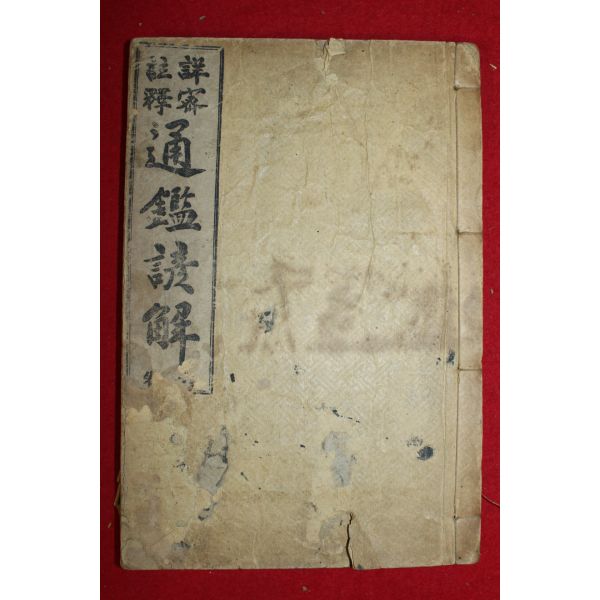 詳審
註釋
通鑑諺解